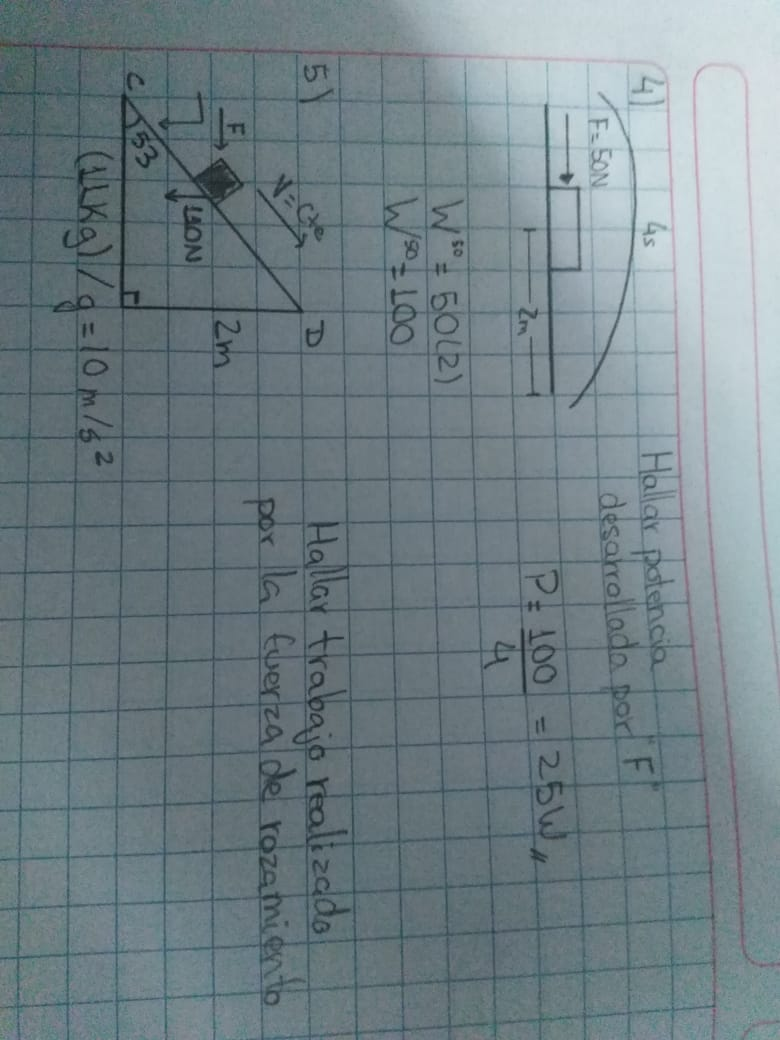 4)
4s
F=50N
2m
Hallar potencia
desarrollada por "F"
W⁵⁰ = 50(2)
W⁵⁰ = 100
P = 100/4 = 25W,,
5)
D
V = cte
F
53
C
2m
(11Kg) / g = 10 m/s²
Hallar trabajo realizado
por la fuerza de rozamiento